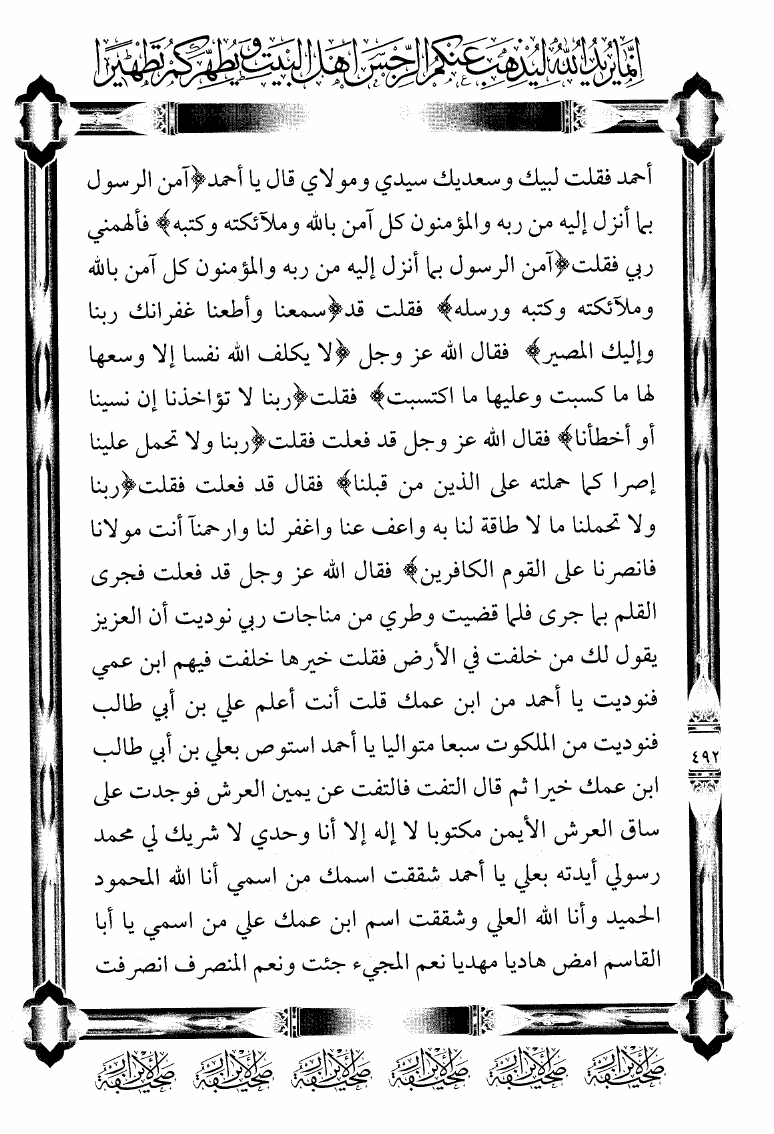 إنما يريد الله ليذهب عنكم الرجس أهل البيت ويطهركم تطهيرا
أحمد فقلت لبيك وسعديك سيدي ومولاي قال يا أحمد﴿آمن الرسول
بما أنزل إليه من ربه والمؤمنون كل آمن بالله وملآئكته وكتبه﴾ فألهمني
ربي فقلت﴿آمن الرسول بما أنزل إليه من ربه والمؤمنون كل آمن بالله
وملآئكته وكتبه ورسله﴾ فقلت قد﴿سمعنا وأطعنا غفرانك ربنا
وإليك المصير﴾ فقال الله عز وجل ﴿لا يكلف الله نفسا إلا وسعها
لها ما كسبت وعليها ما اكتسبت﴾ فقلت﴿ربنا لا تؤاخذنا إن نسينا
أو أخطأنا﴾ فقال الله عز وجل قد فعلت فقلت﴿ربنا ولا تحمل علينا
إصرا كما حملته على الذين من قبلنا﴾ فقال قد فعلت فقلت﴿ربنا
ولا تحملنا ما لا طاقة لنا به واعف عنا واغفر لنا وارحمنآ أنت مولانا
فانصرنا على القوم الكافرين﴾ فقال الله عز وجل قد فعلت فجرى
القلم بما جرى فلما قضيت وطري من مناجات ربي نوديت أن العزيز
يقول لك من خلفت في الأرض فقلت خيرها خلفت فيهم ابن عمي
فنوديت يا أحمد من ابن عمك قلت أنت أعلم علي بن أبي طالب
فنوديت من الملكوت سبعا متواليا يا أحمد استوص بعلي بن أبي طالب
ابن عمك خيرا ثم قال التفت فالتفت عن يمين العرش فوجدت على
ساق العرش الأيمن مكتوبا لا إله إلا أنا وحدي لا شريك لي محمد
رسولي أيدته بعلي يا أحمد شققت اسمك من اسمي أنا الله المحمود
الحميد وأنا الله العلي وشققت اسم ابن عمك علي من اسمي يا أبا
القاسم امض هاديا مهديا نعم المجيء جئت ونعم المنصرف انصرفت
٤٩٢
صحيفة الأبرار صحيفة الأبرار صحيفة الأبرار صحيفة الأبرار صحيفة الأبرار صحيفة الأبرار